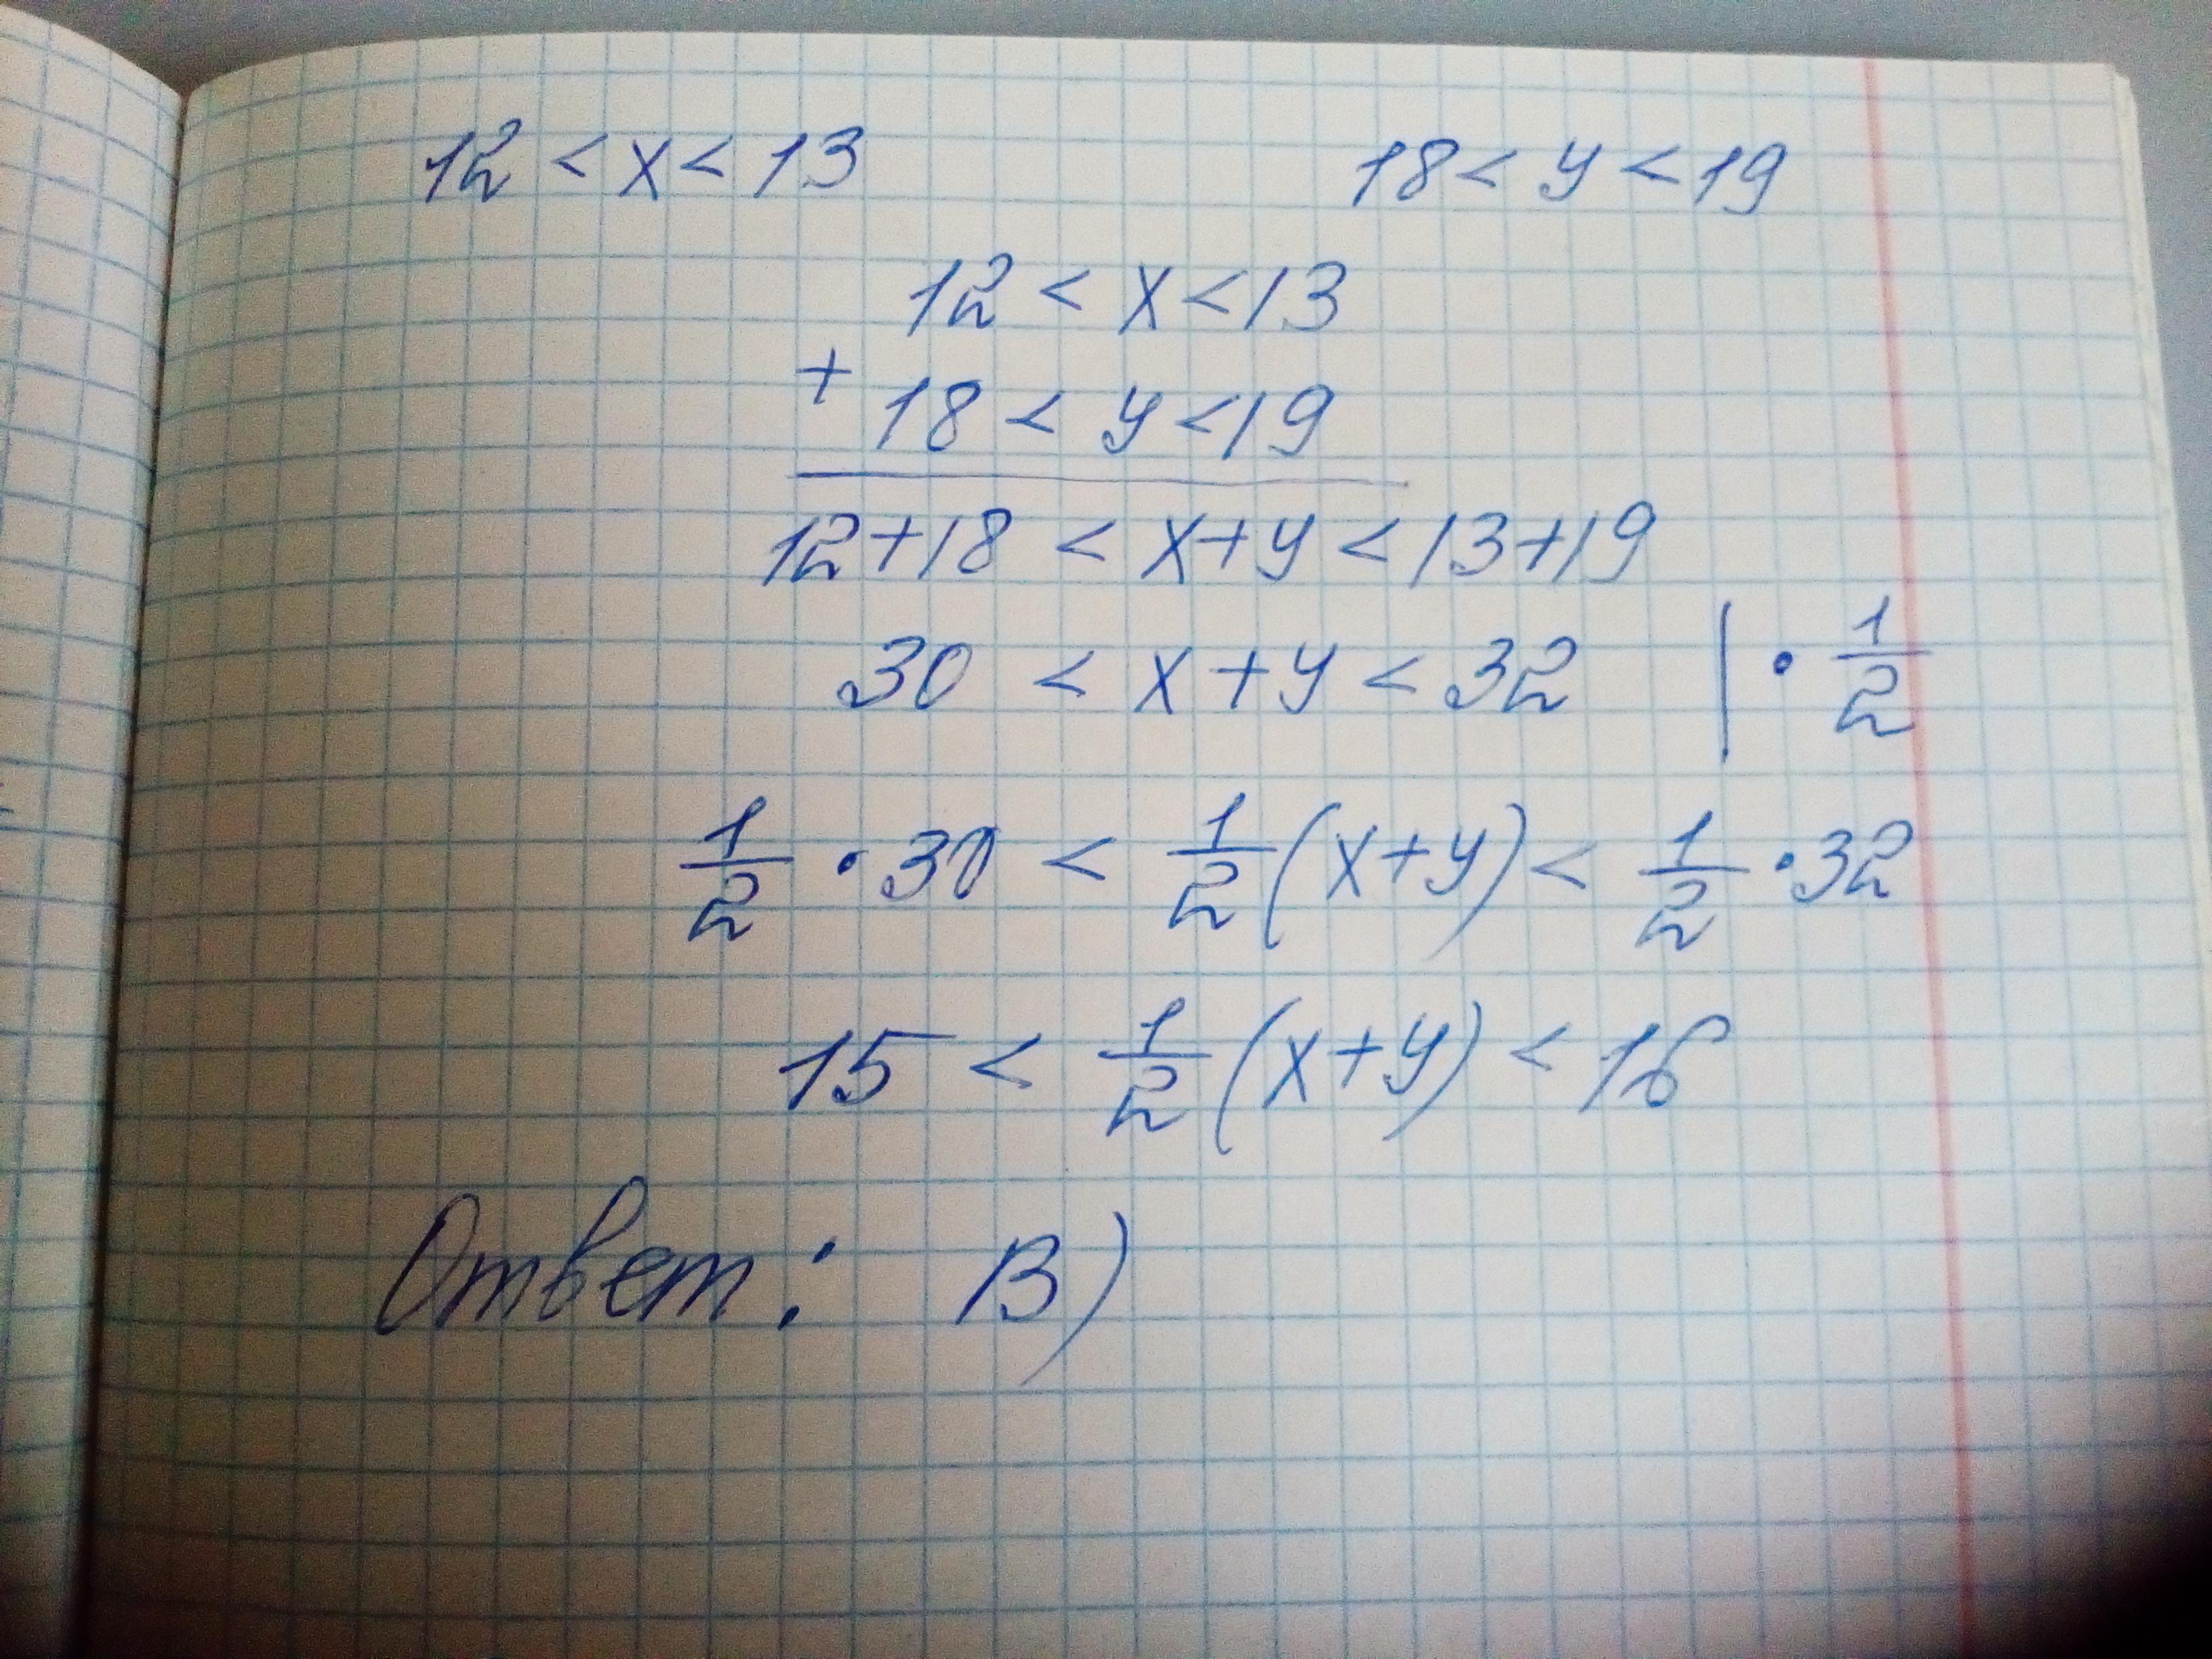 12 < x < 13 18 < y < 19
12 < x < 13
+
18 < y < 19
12+18 < x+y < 13+19
30 < x+y < 32 | · 1/2
1/2 · 30 < 1/2 (x+y) < 1/2 · 32
15 < 1/2 (x+y) < 16
Ответ: В)